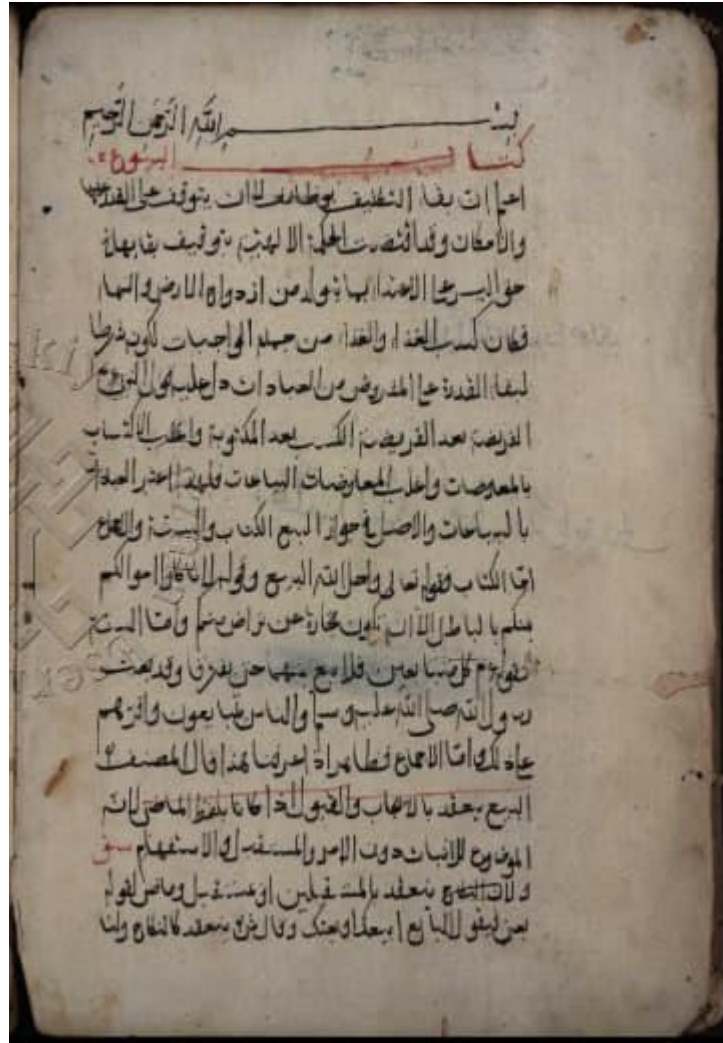 بسم الله الرحمن الرحيم
كتاب البيوع
اعلم ان بقا التكليف بوظائفه الى ان يتوقف على القدرة
والامكان وقد اقتضت الحكمة الالهية بتوقيف بقا بهاء
على الاغتذا بما يتولد من ازدواج الارض والسماء
فكان كسب الغذا والغذا من جملة الواجبات لكونه شرطا
لبقا القدرة على المفروض من العبادات دل عليه
الفريضة بعد الفريضة الكسب بعد المكتوبة واغلب الاكتساب
بالمعاوضات واغلب المعاوضات البياعات فلهذا
بالبياعات والاصل في جواز البيع الكتاب والسنة والاجماع
اما الكتاب فقوله تعالى واحل الله البيع وقوله لا تاكلوا اموالكم
بينكم بالباطل الا ان تكون تجارة عن تراض منكم واما السنة
فقوله عم كل متبايعين فلا بيع بينهما حتى يفترقا وقد بعث
رسول الله صلى الله عليه وسلم والناس يتبايعون واقرهم
على ذلك واما الاجماع فظاهر اذا عرفنا هذا قال المصنف
البيع ينعقد بالايجاب والقبول اذا كانا بلفظ الماضي لانه
الموضوع للاثبات دون الامر والمستقبل والاستفهام
ولان النكاح ينعقد بالمستقبلين او مستقبل وماض لقوله
بعني فيقول البائع ابيعك او بعتك وقال ينعقد كالنكاح ولنا